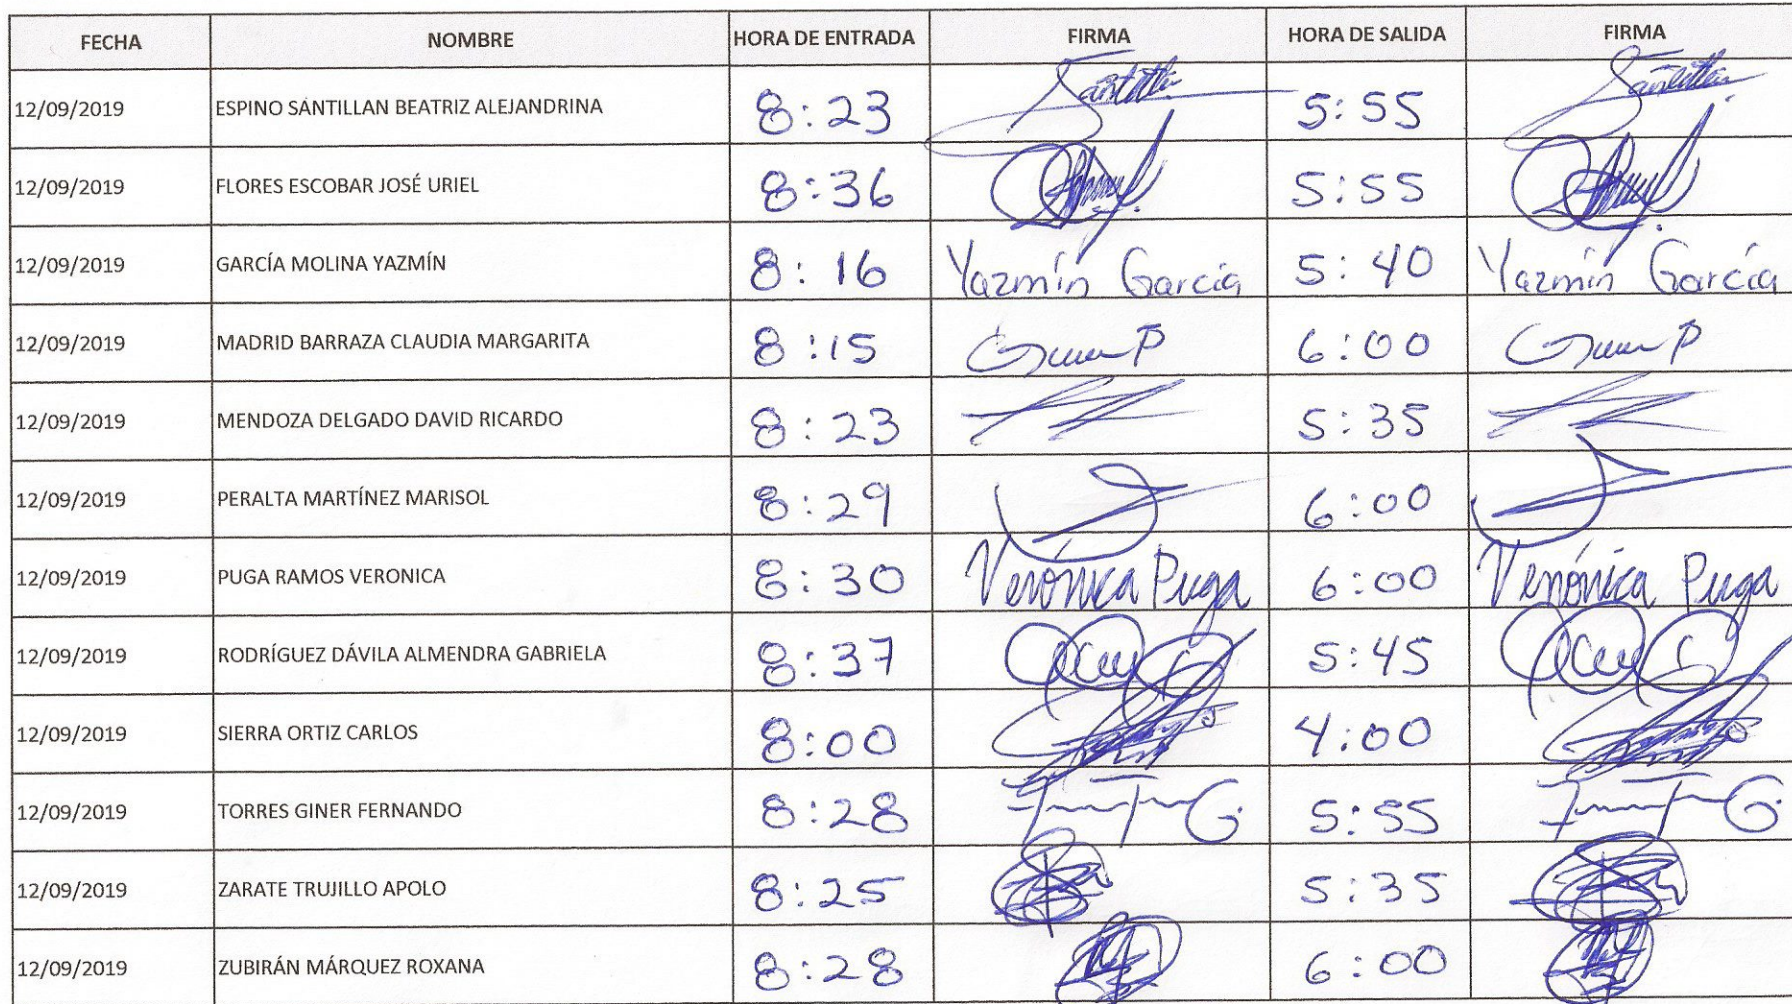 FECHA NOMBRE HORA DE ENTRADA FIRMA HORA DE SALIDA FIRMA
12/09/2019 ESPINO SANTILLAN BEATRIZ ALEJANDRINA 8:23 5:55
12/09/2019 FLORES ESCOBAR JOSÉ URIEL 8:36 5:55
12/09/2019 GARCÍA MOLINA YAZMÍN 8:16 Yazmín García 5:40 Yazmín García
12/09/2019 MADRID BARRAZA CLAUDIA MARGARITA 8:15 6:00
12/09/2019 MENDOZA DELGADO DAVID RICARDO 8:23 5:35
12/09/2019 PERALTA MARTÍNEZ MARISOL 8:29 6:00
12/09/2019 PUGA RAMOS VERONICA 8:30 Verónica Puga 6:00 Verónica Puga
12/09/2019 RODRÍGUEZ DÁVILA ALMENDRA GABRIELA 8:37 5:45
12/09/2019 SIERRA ORTIZ CARLOS 8:00 4:00
12/09/2019 TORRES GINER FERNANDO 8:28 5:55
12/09/2019 ZARATE TRUJILLO APOLO 8:25 5:35
12/09/2019 ZUBIRÁN MÁRQUEZ ROXANA 8:28 6:00